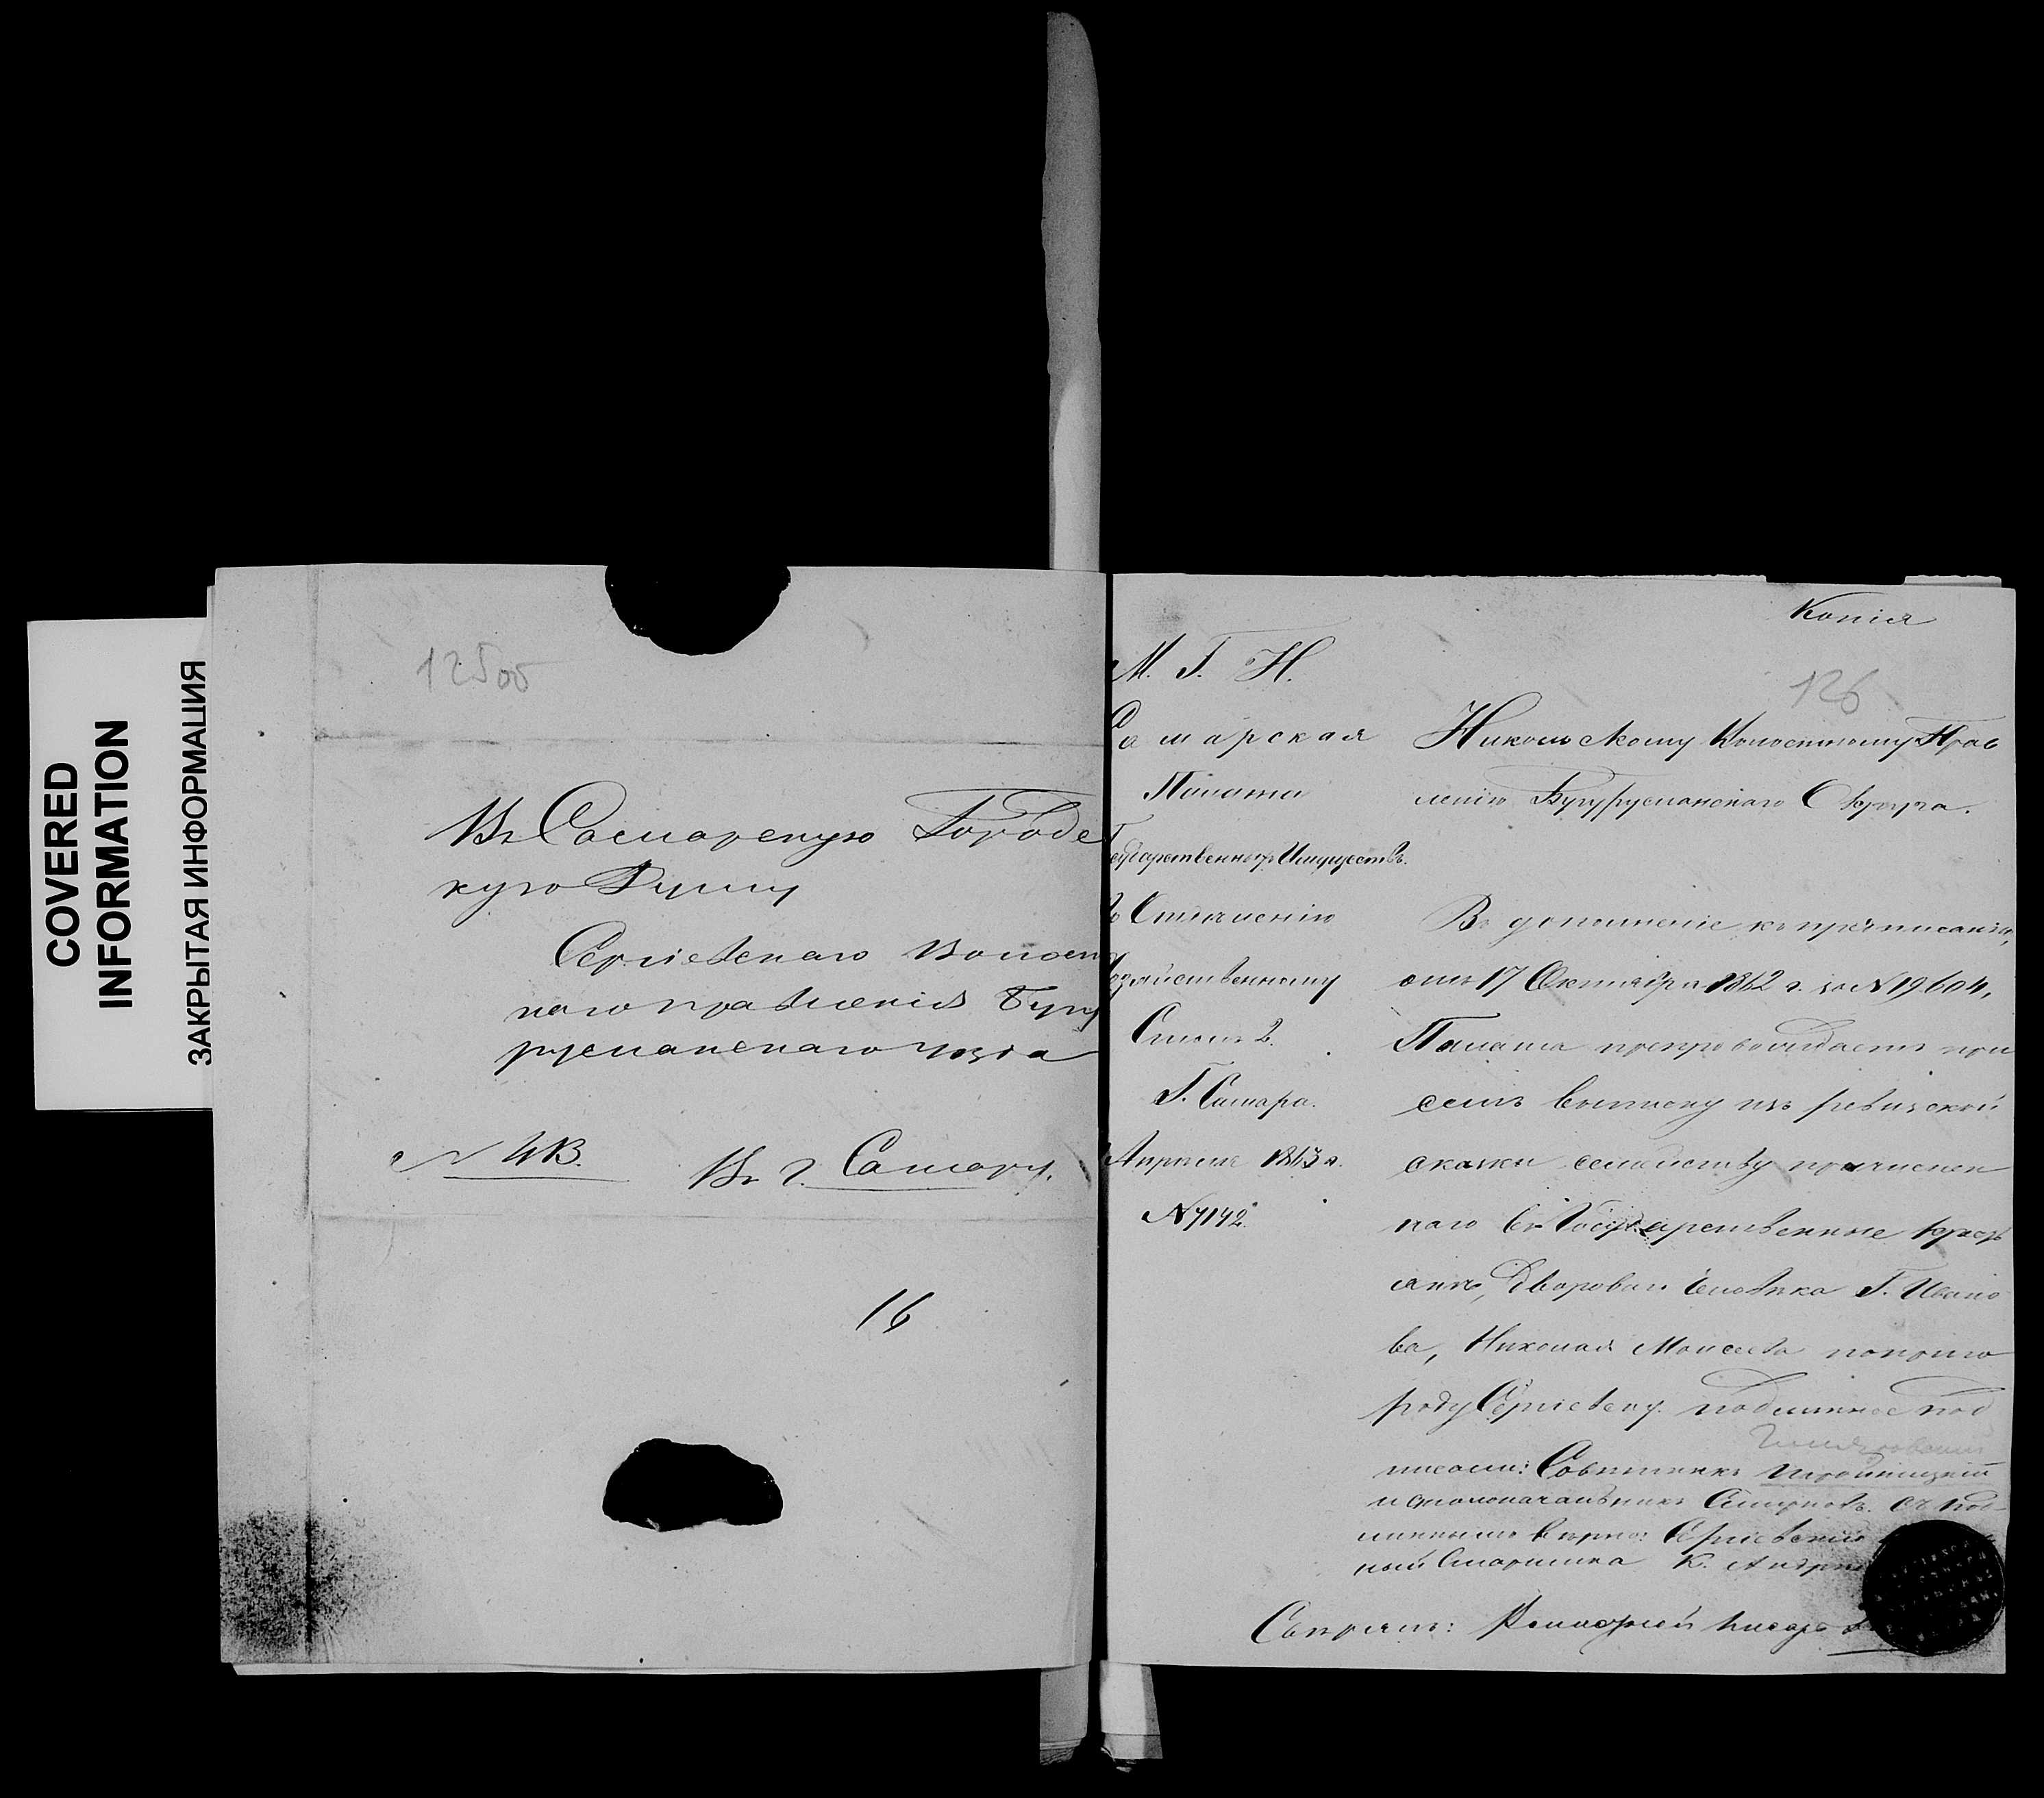 COVERED
INFORMATION
ЗАКРЫТАЯ ИНФОРМАЦИЯ
12500
Въ Самарскую Городс
кую Думу
Сергіевскаго Волост
наго правленія Бугу
русланскаго уѣзда
№ 413.
Въ г. Самару.
16
Копія
126
М. Г. И.
Самарская
Палата
Государственныхъ Имуществъ.
Отдѣленію
Хозяйственному
Столъ 2.
Г. Самара.
Апрѣля 1863 г.
№ 7142.
Никольскому Волостному Прав
ленію Бугурусланскаго Округа.
Въ дополненіе къ предписанію,
отъ 17 Октября 1862 г. за № 19604,
Палата препровождаетъ при
семъ выписку изъ ревизской
сказки семейству причислен
наго въ Государственные крест
яне, Двороваго человѣка Г. Ивано
ва, Николая Моисеева по приго
роду Сергіевску. Подлинное под
писали: Совѣтникъ
и столоначальникъ Смирновъ. Съ под
линнымъ вѣрно: Сергіевскій
ный Старшина К. Андре
Свѣрялъ: Волостной Писарь